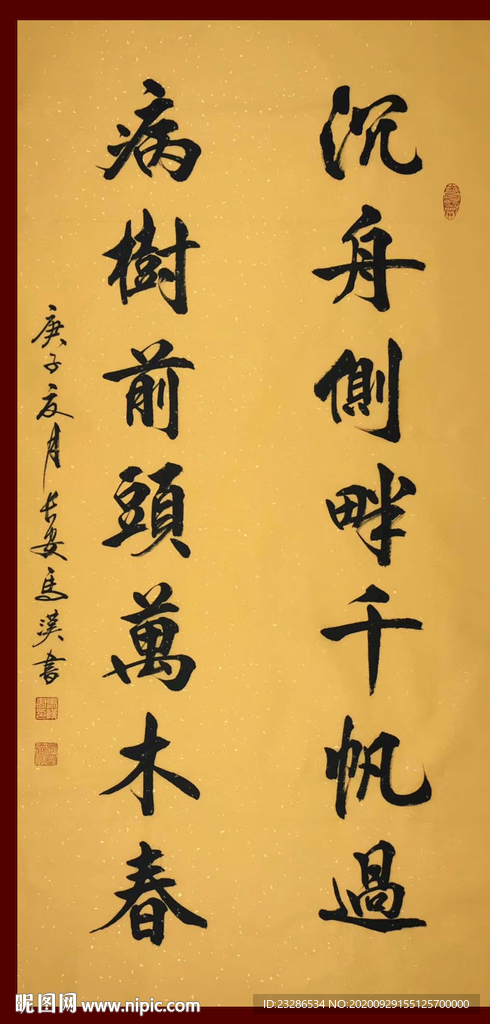 沉舟側畔千帆過
病樹前頭萬木春
庚子夏月长安馬漢書
昵图网 www.nipic.com
ID:23286534 NO:20200929155125700000